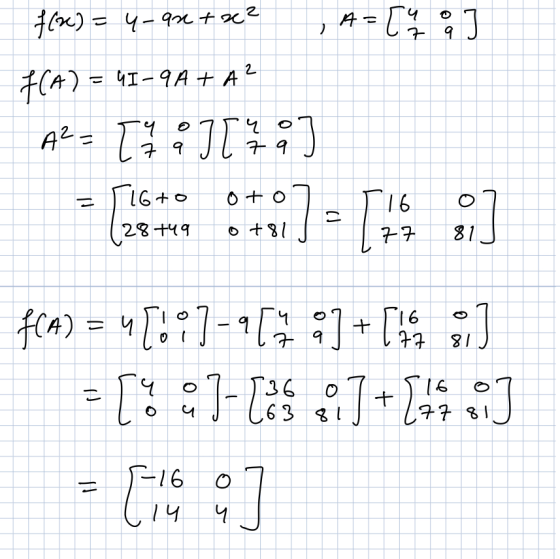 f(x) = 4-9x+x² , A = [4 0; 7 9]
f(A) = 4I-9A+A²
A² = [4 0; 7 9][4 0; 7 9]
= [16+0 0+0; 28+49 0+81] = [16 0; 77 81]
f(A) = 4[1 0; 0 1]-9[4 0; 7 9]+[16 0; 77 81]
= [4 0; 0 4]-[36 0; 63 81]+[16 0; 77 81]
= [-16 0; 14 4]